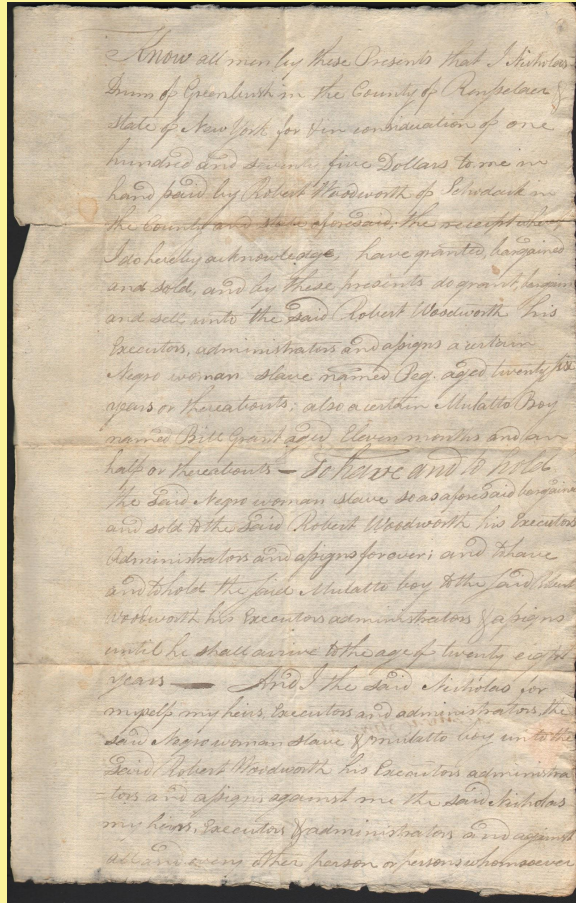 Know all men by these Presents that I Nicholas
Drum of Greenbush in the County of Renselaer &
State of New York for & in consideration of one
hundred and seventy five Dollars to me in
hand paid by Robert Woodworth of Schodack in
the County and State aforesaid; the receipt
I do hereby acknowledge, have granted, bargained
and sold, and by these presents do grant, bargain
and sell unto the said Robert Woodworth his
Executors, administrators and assigns a certain
Negro woman slave named Peg. aged twenty six
years or thereabouts: also a certain Mulatto Boy
named Bill Grant aged Eleven months and an
half or thereabouts — To have and to hold
the said Negro woman slave so as aforesaid bargained
and sold to the said Robert Woodworth his Executors
Administrators and assigns forever; and to have
and to hold the said Mulatto boy to the said Robert
Woodworth his Executors administrators & assigns
until he shall arrive to the age of twenty eight
years — And I the said Nicholas for
myself my heirs, Executors and administrators, the
said Negro woman slave & mulatto boy unto the
said Robert Woodworth his Executors administra
=tors and assigns against me the said Nicholas
my heirs, Executors & administrators and against
all and every other person or persons whomsoever